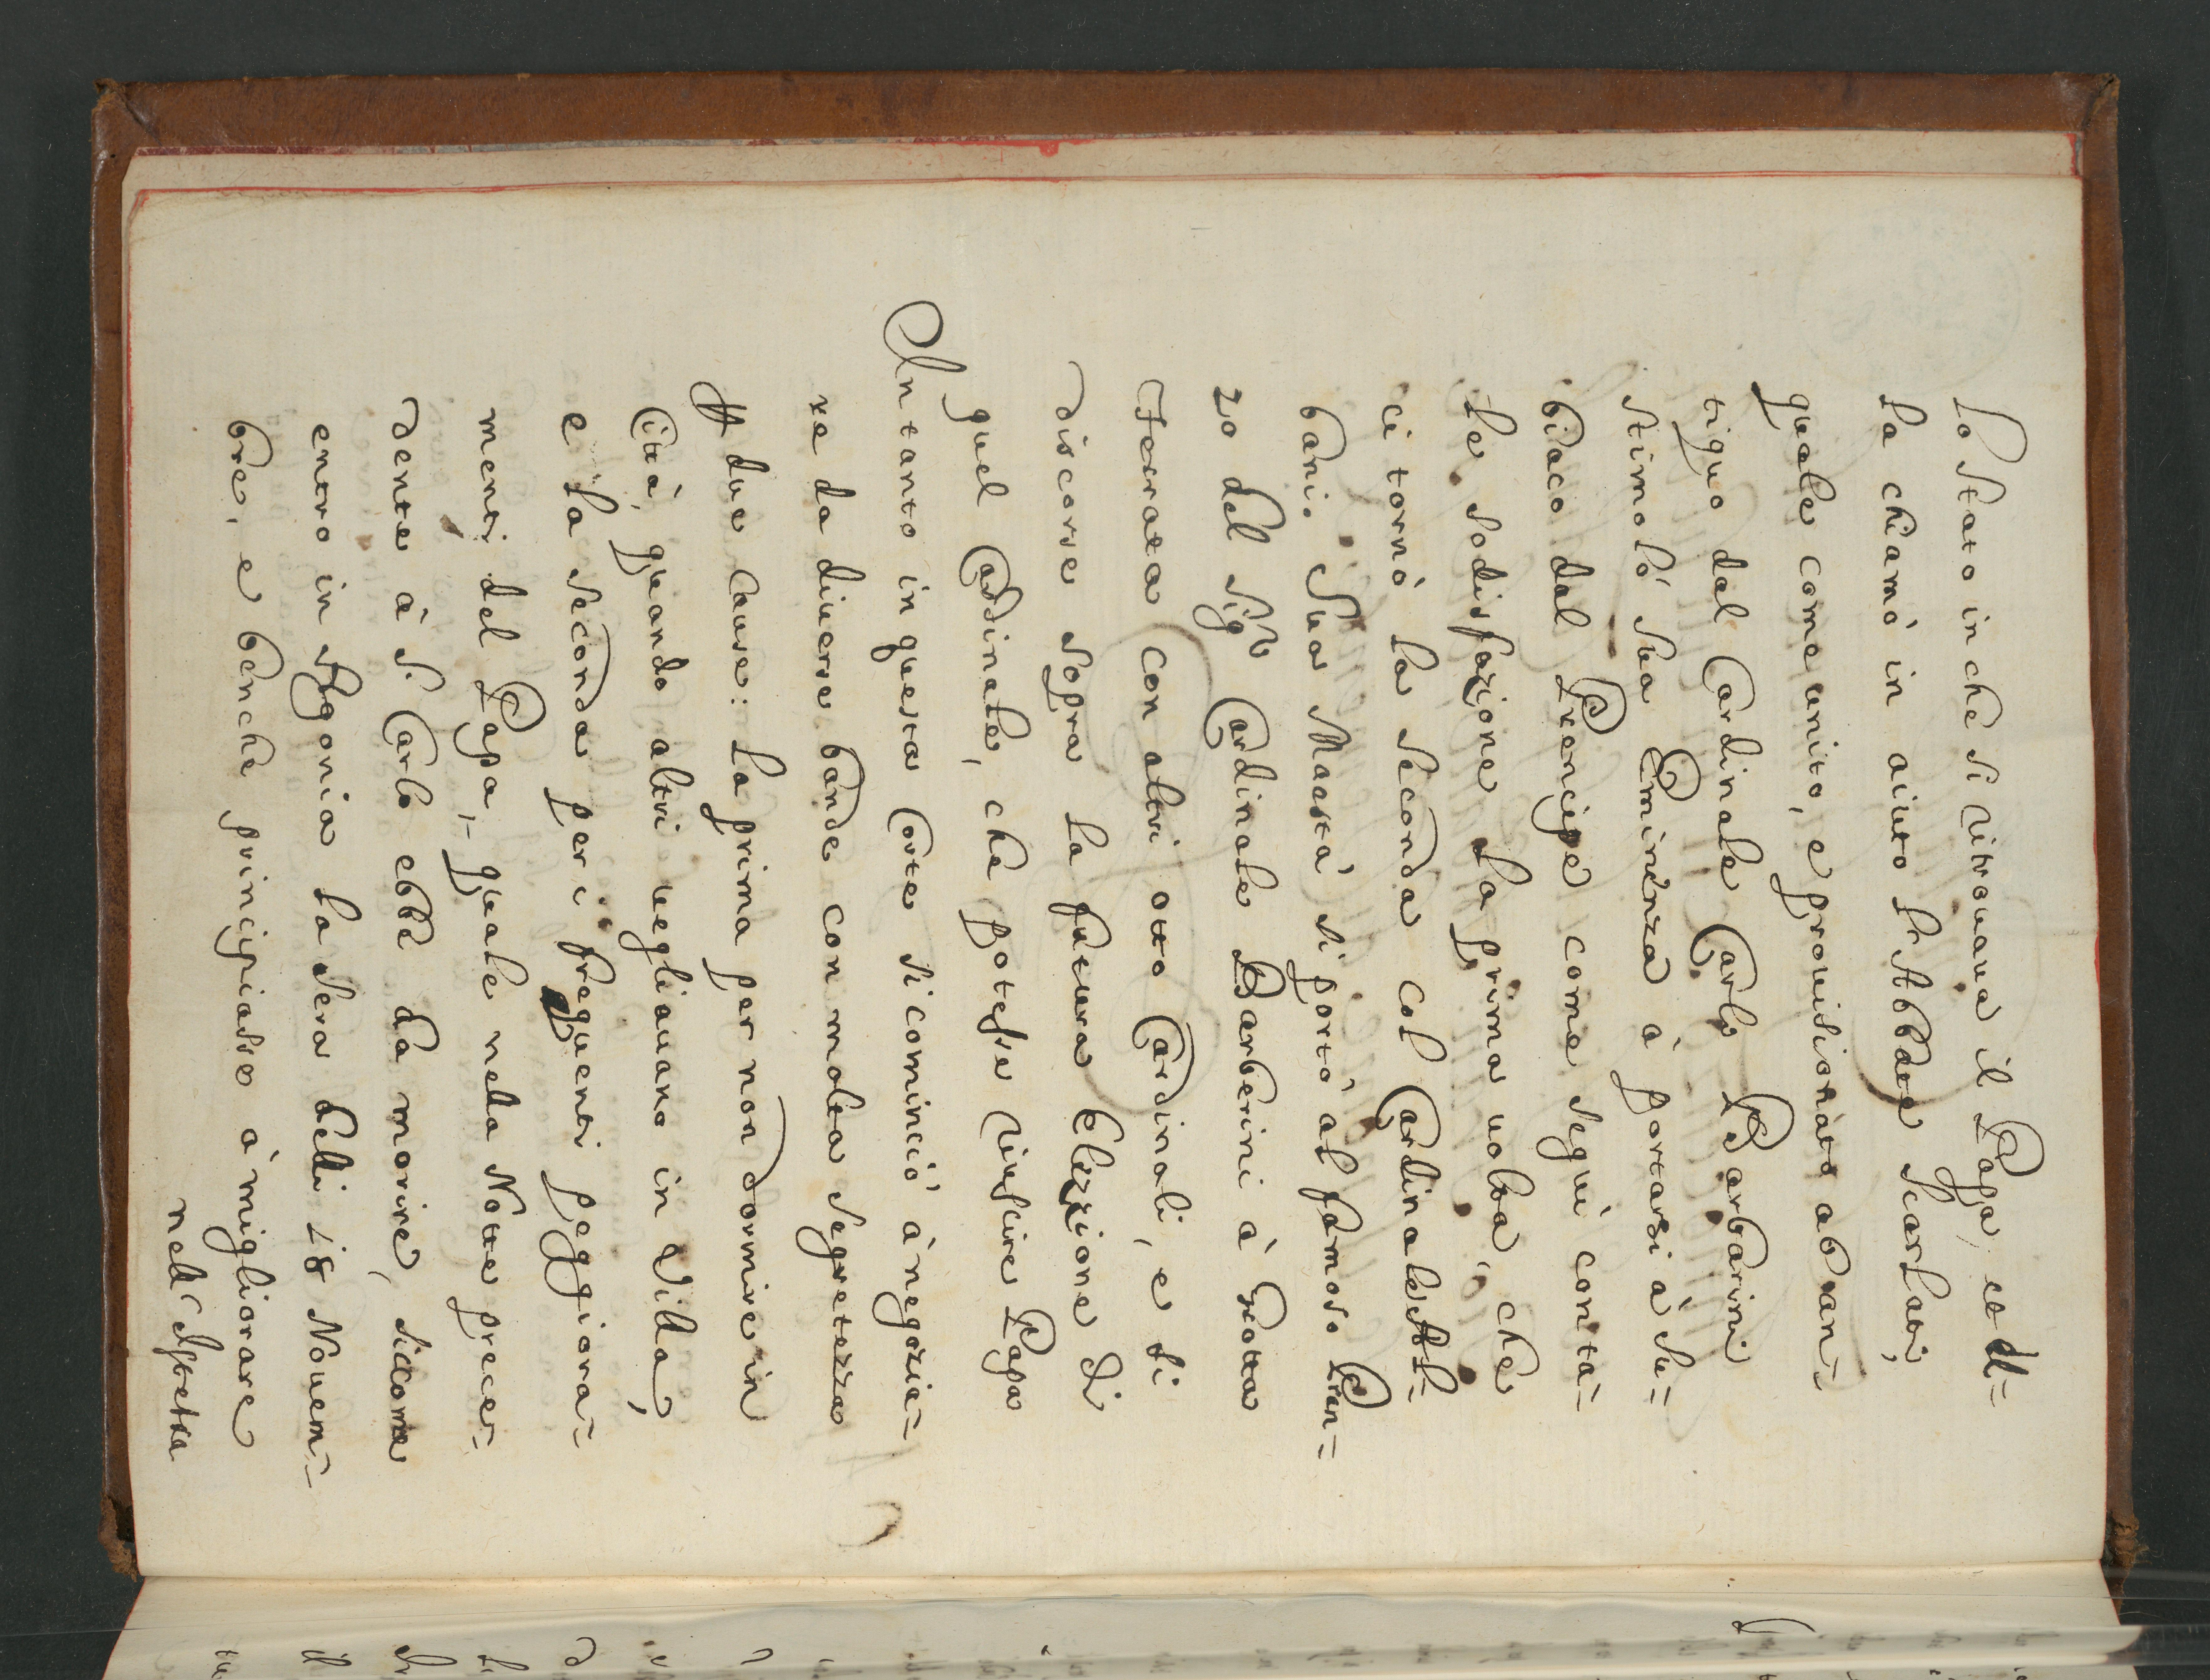 lo stato in che si ritrouaua il Papa, ed el=
la chiamò in aiuto l'Abbate Scarlati,
quale come unito, e prouisionato ab an=
tiquo dal Cardinale Carlo Barbarini
stimolò sua Eminenza à portarsi à Su=
biaco dal Prencipe come seguì conta=
le sodisfazione la prima uolta, che
ci tornò la seconda col Cardinale Al=
bani. Sua Maestà si portò al famoso Pran=
zo del Sig.r Cardinale Barberini à Grotta
Ferrata con altri otto Cardinali, e si
discorse sopra la futura Elezzione di
quel Cardinale, che potesse riuscire Papa
Intanto in questa Corte si cominciò à negozia=
re da diuerse bande con molta segretezza
A due Cause: La prima per non dormire in
Città, quando altri uegliauano in Villa,
e la seconda per i frequenti peggiora=
menti del Papa, quale nella Notte prece=
dente à S. Carlo ebbe da morire, siccome
entro in Agonia la sera delli 18 Nouem=
bre, e benche principiasse à migliorare
nell'